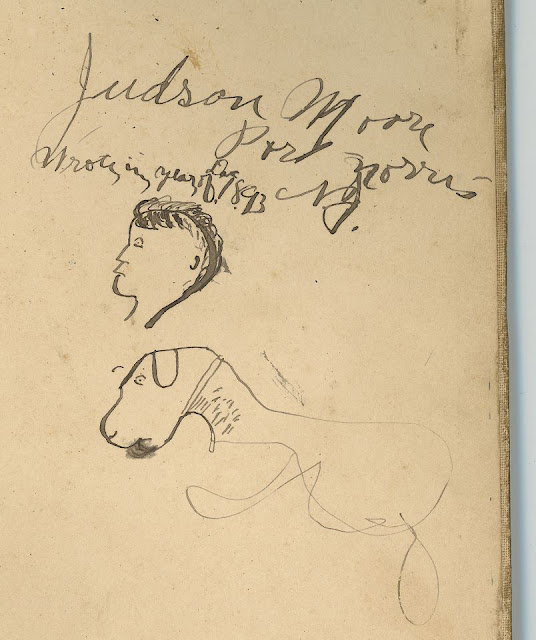 Judson Moore
Port Norris
Wrote in year of 1893 NJ.